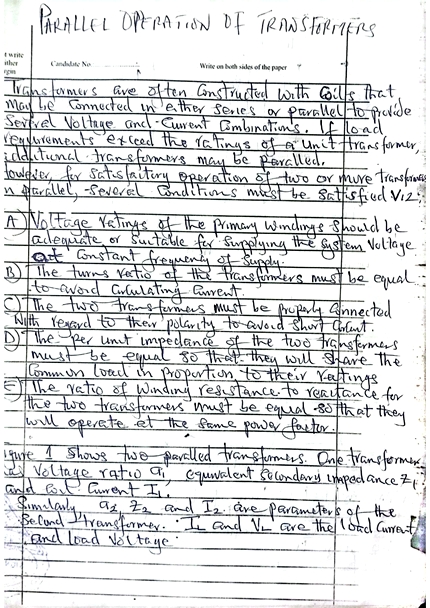 PARALLEL OPERATION OF TRANSFORMERS
t write
ither
rgin
Candidate No
Write on both sides of the paper
Transformers are often Constructed with Coils that
May be Connected in either series or parallel to provide
Several Voltage and Current Combinations. If load
requirements exceed the ratings of a Unit transformer,
additional transformers may be Paralled.
However, for Satisfactory operation of two or more transformers
in parallel, Several Conditions must be Satisfied Viz:
A) Voltage ratings of the Primary Windings should be
adequate or suitable for supplying the system Voltage
at Constant frequency of Supply.
B) The turns ratio of the transformers must be equal
to avoid Circulating Current.
C) The two transformers must be properly Connected
With regard to their polarity to avoid Short Circuit.
D) The Per Unit impedance of the two transformers
must be equal so that they will share the
Common load in proportion to their ratings
E) The ratio of Winding resistance to reactance for
the two transformers must be equal so that they
will operate at the same power factor.
igure 1 Shows two paralled transformers. One transformer
Voltage ratio a1, equivalent secondary impedance Z1
and Current I1.
Similarly a2, Z2 and I2 are parameters of the
Second transformer. IL and VL are the load Current
and load Voltage.